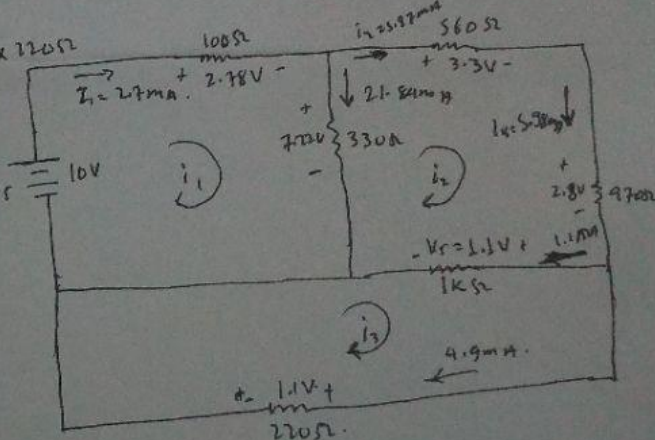 x 220Ω
100Ω
i₂=5.97mA
560Ω
I₁ = 27mA.
+ 2.78V -
+ 3.3V -
21.84mA
+
7.22V
330Ω
-
10V
i₁
i₂
+
2.8V
470Ω
-
- Vr = 1.1V +
1.1mA
1KΩ
i₃
4.9mA.
1.1V +
220Ω.